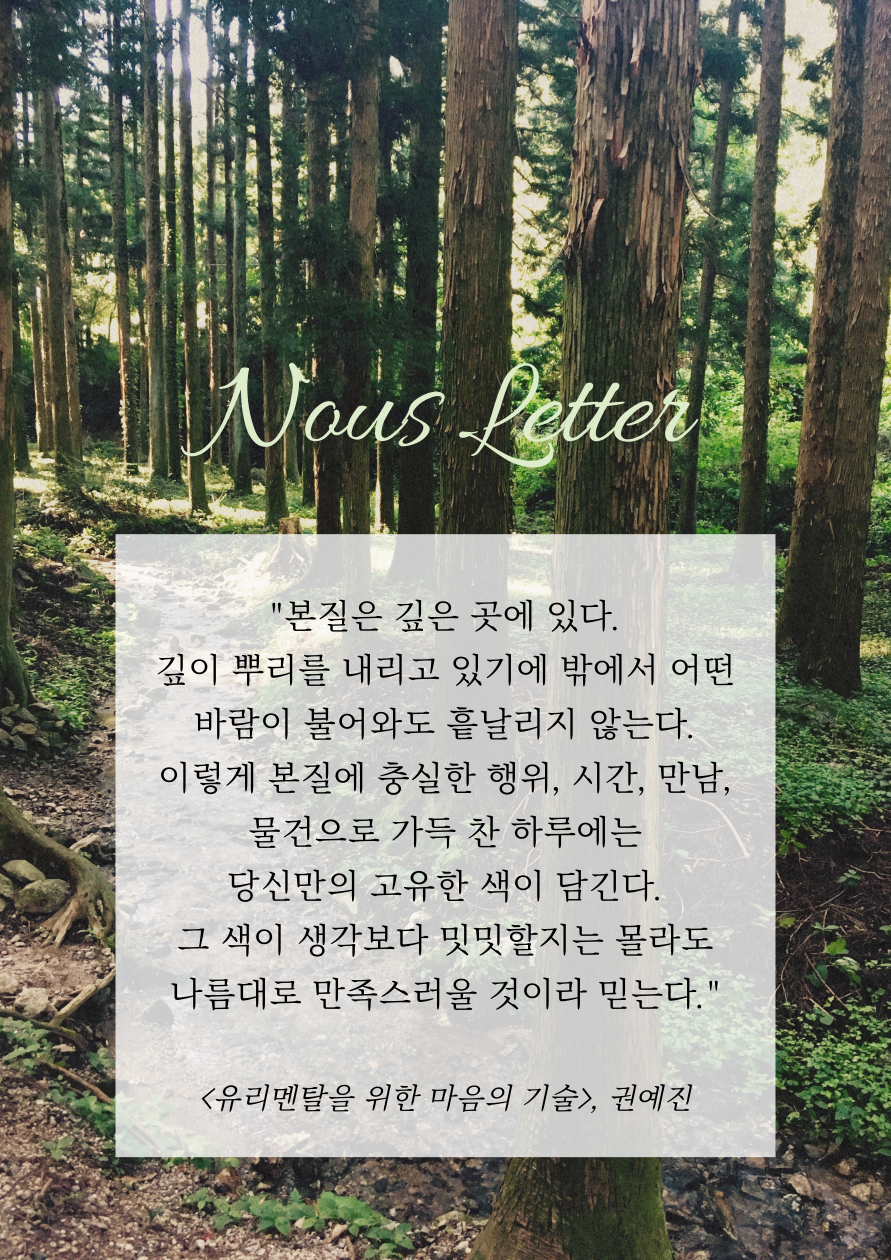 Nous Letter
"본질은 깊은 곳에 있다.
깊이 뿌리를 내리고 있기에 밖에서 어떤
바람이 불어와도 흩날리지 않는다.
이렇게 본질에 충실한 행위, 시간, 만남,
물건으로 가득 찬 하루에는
당신만의 고유한 색이 담긴다.
그 색이 생각보다 밋밋할지는 몰라도
나름대로 만족스러울 것이라 믿는다."
<유리멘탈을 위한 마음의 기술>, 권예진